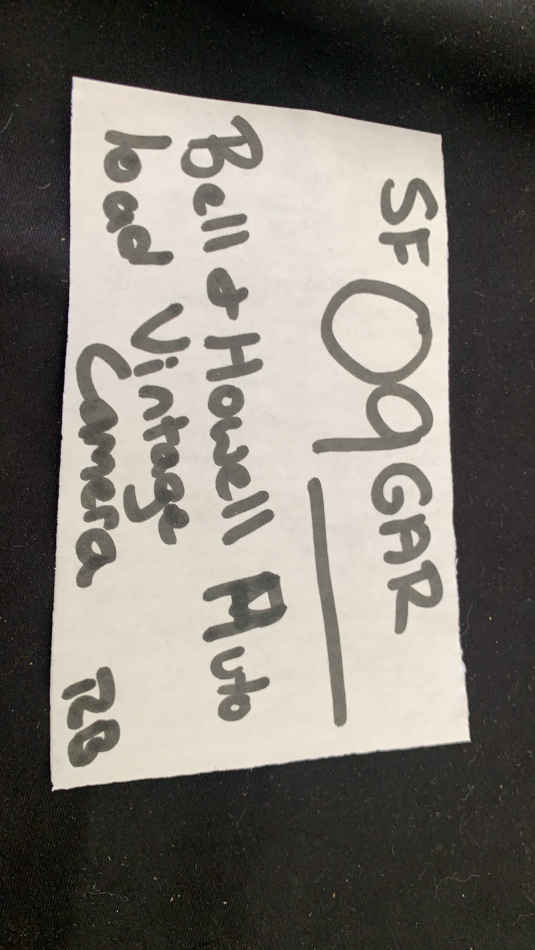 SF 09 GAR
Bell & Howell Auto
load Vintage
Camera RB